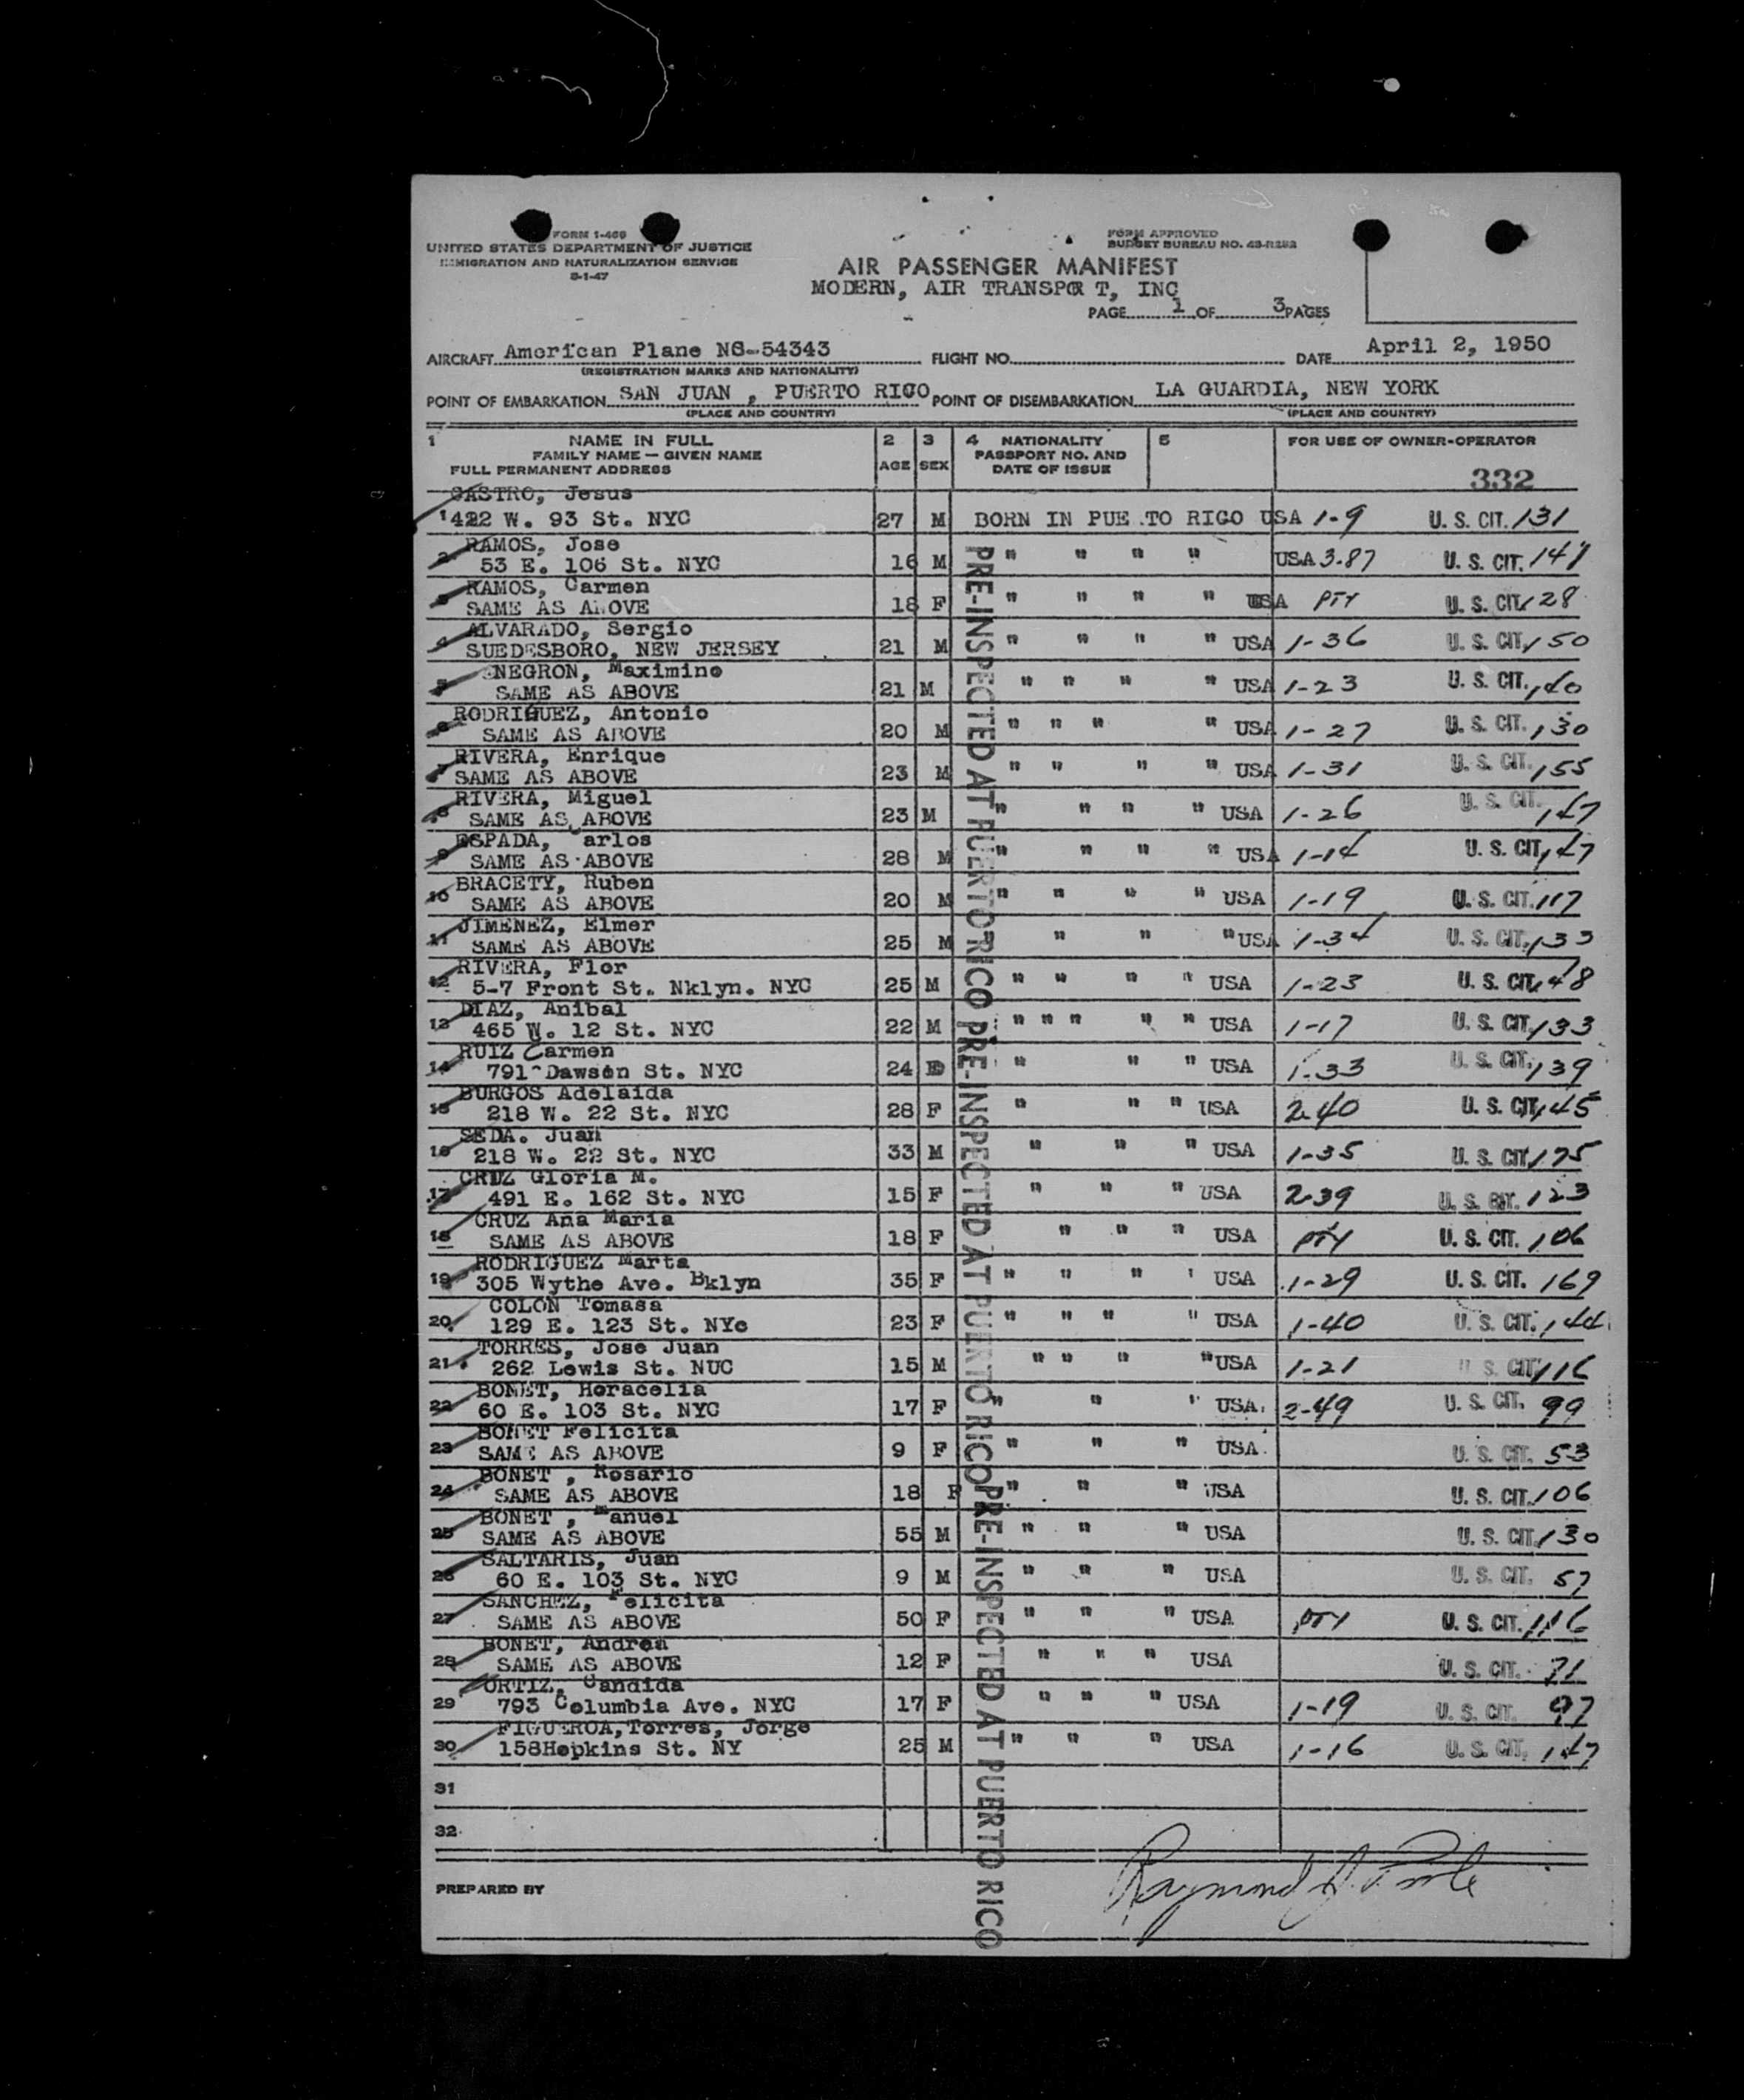 FORM I-466
UNITED STATES DEPARTMENT OF JUSTICE
IMMIGRATION AND NATURALIZATION SERVICE
FORM APPROVED
BUDGET BUREAU NO. 43-R282
AIR PASSENGER MANIFEST
MODERN, AIR TRANSPOR T, INC
PAGE 1 OF 3 PAGES
AIRCRAFT American Plane NC-54343 FLIGHT NO. DATE April 2, 1950
(REGISTRATION MARKS AND NATIONALITY)
POINT OF EMBARKATION SAN JUAN , PUERTO RICO POINT OF DISEMBARKATION LA GUARDIA, NEW YORK
(PLACE AND COUNTRY) (PLACE AND COUNTRY)
1 NAME IN FULL 2 3 4 NATIONALITY 5 FOR USE OF OWNER-OPERATOR
FAMILY NAME — GIVEN NAME PASSPORT NO. AND
FULL PERMANENT ADDRESS AGE SEX DATE OF ISSUE
332
CASTRO, Jesus
1 422 W. 93 St. NYC 27 M BORN IN PUE TO RICO USA 1-9 U. S. CIT. 131
RAMOS, Jose
2 53 E. 106 St. NYC 16 M " " " " USA 3.87 U. S. CIT. 147
RAMOS, Carmen
3 SAME AS ABOVE 18 F " " " " USA PTY U. S. CIT. 128
ALVARADO, Sergio
4 SUEDESBORO, NEW JERSEY 21 M " " " " USA 1-36 U. S. CIT. 150
NEGRON, Maximino
5 SAME AS ABOVE 21 M " " " " USA 1-23 U. S. CIT.
RODRIGUEZ, Antonio
6 SAME AS ABOVE 20 M " " " " USA 1-27 U. S. CIT. 130
RIVERA, Enrique
7 SAME AS ABOVE 23 M " " " " USA 1-31 U. S. CIT. 155
RIVERA, Miguel
8 SAME AS ABOVE 23 M " " " " USA 1-26 U. S. CIT. 147
ESPADA, Carlos
9 SAME AS ABOVE 28 M " " " " USA 1-14 U. S. CIT. 147
BRACETY, Ruben
10 SAME AS ABOVE 20 M " " " " USA 1-19 U. S. CIT. 117
JIMENEZ, Elmer
11 SAME AS ABOVE 25 M " " " " USA 1-34 U. S. CIT. 133
RIVERA, Flor
12 5-7 Front St. Nklyn. NYC 25 M " " " " USA 1-23 U. S. CIT. 148
DIAZ, Anibal
13 465 W. 12 St. NYC 22 M " " " " " USA 1-17 U. S. CIT. 133
RUIZ Carmen
14 791 Dawson St. NYC 24 " " " USA 1-33 U. S. CIT. 139
BURGOS Adelaida
15 218 W. 22 St. NYC 28 F " " " USA 2-40 U. S. CIT. 145
SEDA. Juan
16 218 W. 22 St. NYC 33 M " " " USA 1-35 U. S. CIT. 175
CRUZ Gloria M.
17 491 E. 162 St. NYC 15 F " " " USA 2-39 U. S. CIT. 123
CRUZ Ana Maria
18 SAME AS ABOVE 18 F " " " USA PTY U. S. CIT. 106
RODRIGUEZ Marta
19 305 Wythe Ave. Bklyn 35 F " " " ' USA 1-29 U. S. CIT. 169
COLON Tomasa
20 129 E. 123 St. NYc 23 F " " " " USA 1-40 U. S. CIT. 144
TORRES, Jose Juan
21 262 Lewis St. NUC 15 M " " " " USA 1-21 U. S. CIT. 116
BONET, Horacelia
22 60 E. 103 St. NYC 17 F " " ' USA 2-49 U. S. CIT. 99
BONET Felicita
23 SAME AS ABOVE 9 F " " " USA U. S. CIT. 53
BONET , Rosario
24 SAME AS ABOVE 18 F " " " USA U. S. CIT. 106
BONET , Manuel
25 SAME AS ABOVE 55 M " " " USA U. S. CIT. 130
SALTARIS, Juan
26 60 E. 103 St. NYC 9 M " " " USA U. S. CIT. 57
SANCHEZ, Felicita
27 SAME AS ABOVE 50 F " " " USA PTY U. S. CIT. 116
BONET, Andrea
28 SAME AS ABOVE 12 F " " " USA U. S. CIT. 71
ORTIZ, Candida
29 793 Columbia Ave. NYC 17 F " " " USA 1-19 U. S. CIT. 97
FIGUEROA, Torres, Jorge
30 158Hopkins St. NY 25 M " " " USA 1-16 U. S. CIT. 147
31
32
PRE-INSPECTED AT PUERTO RICO PRE-INSPECTED AT PUERTO RICO PRE-INSPECTED AT PUERTO RICO
PREPARED BY
Raymond